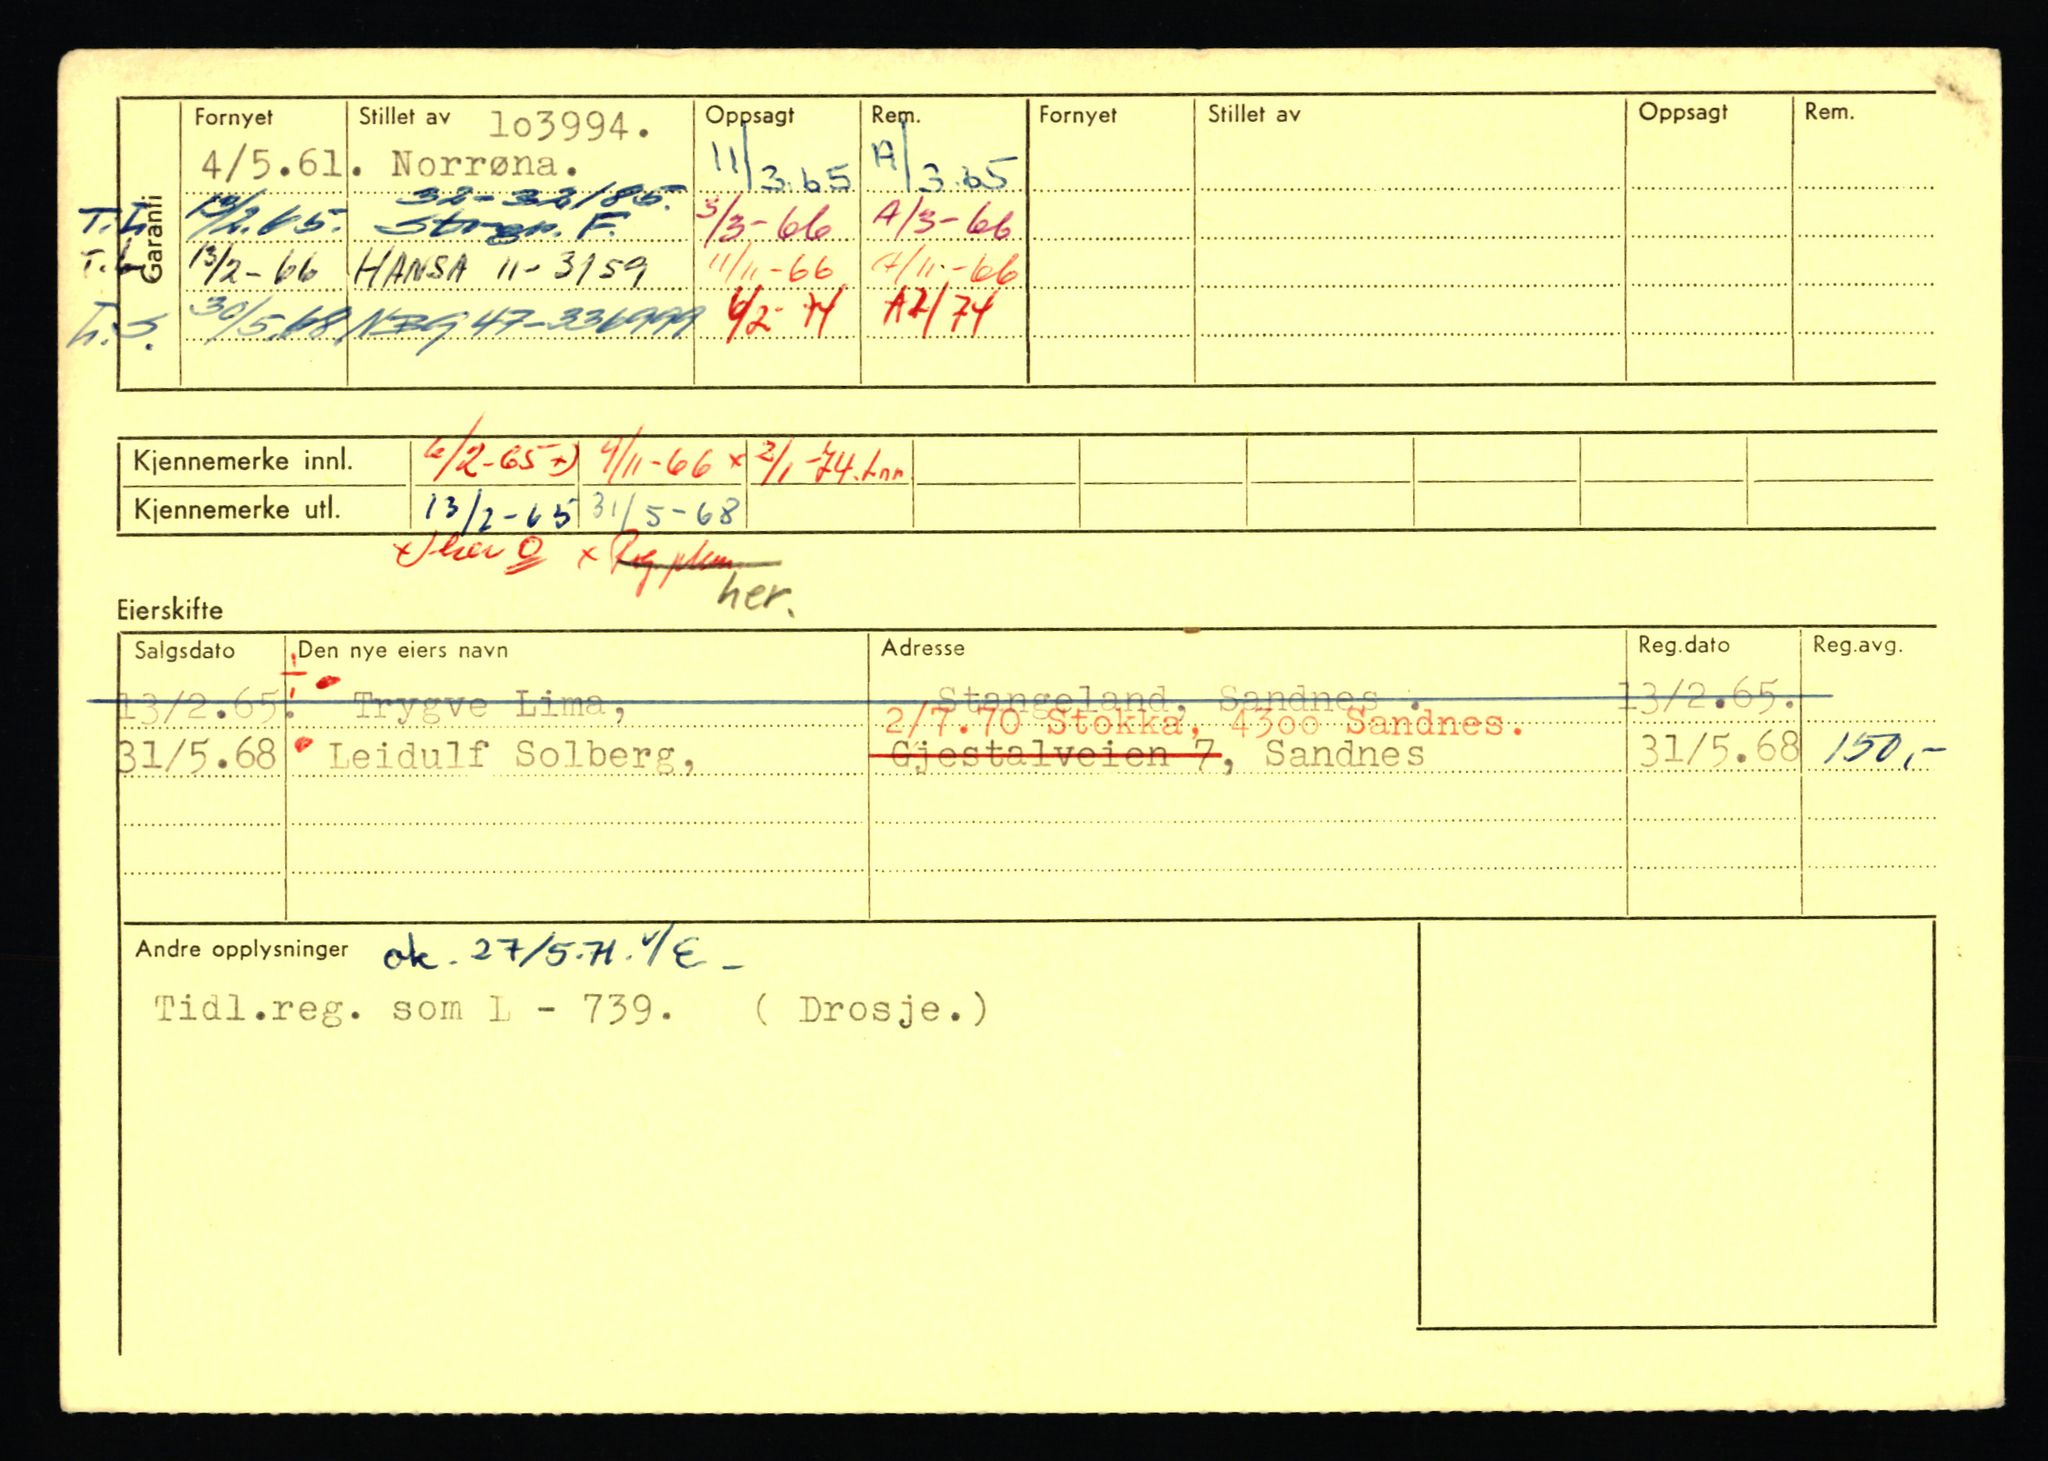 Garanti
Fornyet Stillet av 103994. Oppsagt Rem. Fornyet Stillet av Oppsagt Rem.
4/5.61. Norrøna. 11/3.65 A/3.65
32-32/85.
T.L. 13/2.65. Storgr. F. 3/3-66 A/3-66
T.L 13/2-66 HANSA 11-3159 11/11-66 A/11-66
L.S. 30/5.68 47-336999 6/2-74 A2/74
Kjennemerke innl. 6/2-65 x) 4/11-66 x 2/1-74.
Kjennemerke utl. 13/2-65 31/5-68
x) her 0 x
her.
Eierskifte
Salgsdato Den nye eiers navn Adresse Reg.dato Reg.avg.
13/2.65. Trygve Lima, Stangeland, Sandnes . 13/2.65.
2/7.70 Stokka, 4300 Sandnes.
31/5.68 Leidulf Solberg, Gjestalveien 7, Sandnes 31/5.68 150,-
Andre opplysninger ok. 27/5.71. V/E -
Tidl.reg. som L - 739. ( Drosje.)